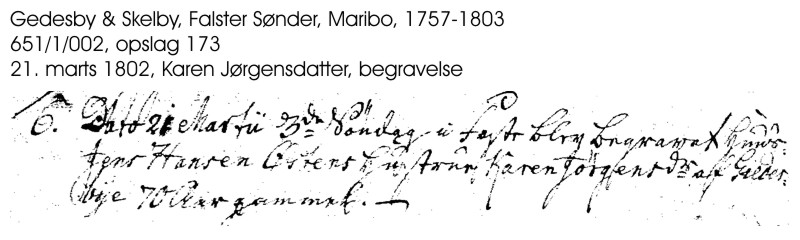 Gedesby & Skelby, Falster Sønder, Maribo, 1757-1803
651/1/002, opslag 173
21. marts 1802, Karen Jørgensdatter, begravelse
6. Dato 21 Martii 3de Søndag i Faste blev begravet Huus-
Jens Hansen Østens Hustrue Karen Jörgensdr af Gieder-
bye 70 Aar gammel. —